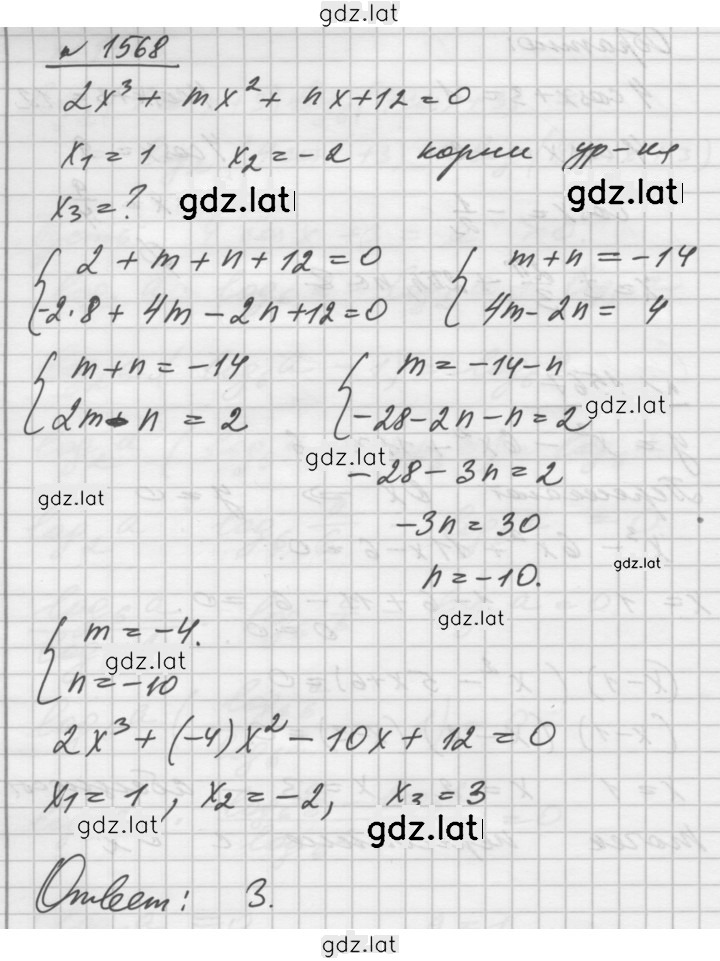 gdz.lat
№ 1568
2x³ + mx² + nx + 12 = 0
x₁ = 1 x₂ = -2 корни ур-ия
x₃ = ? gdz.lat gdz.lat
{ 2 + m + n + 12 = 0 { m + n = -14
-2·8 + 4m - 2n + 12 = 0 4m - 2n = 4
{ m + n = -14 { m = -14 - n
2m - n = 2 -28 - 2n - n = 2 gdz.lat
gdz.lat -28 - 3n = 2
gdz.lat -3n = 30
n = -10. gdz.lat
gdz.lat
{ m = -4.
gdz.lat
n = -10
2x³ + (-4)x² - 10x + 12 = 0
x₁ = 1, x₂ = -2, x₃ = 3
gdz.lat gdz.lat
Ответ: 3.
gdz.lat